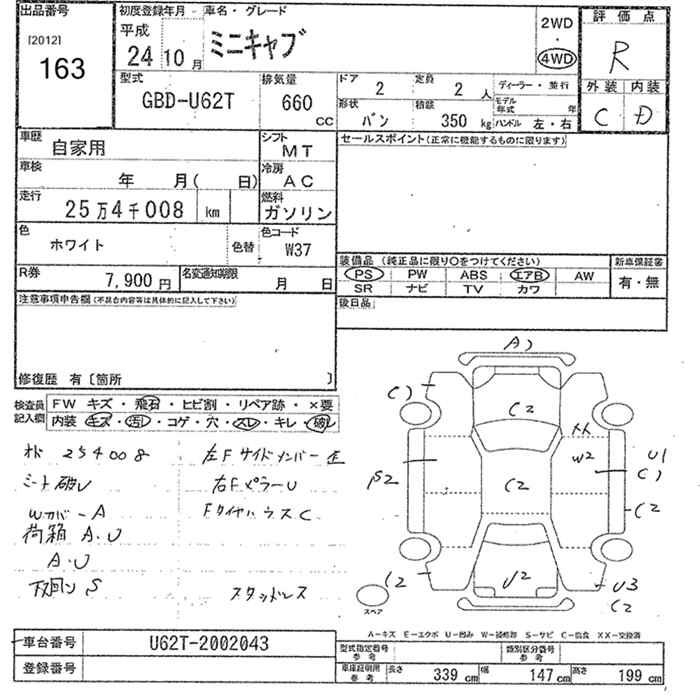 出品番号
[2012]
163
初度登録年月 車名・グレード
平成
24 10 月
ミニキャブ
2WD
4WD
評価点
R
外装 内装
C D
型式
GBD-U62T
排気量
660 cc
ドア 2
定員 2 人
ディーラー・並行
形状 バン
積載 350 kg
モデル年式 年
ハンドル 左・右
車歴
自家用
シフト
MT
車検
年 月( 日)
冷房
AC
走行
25万4千008 km
燃料
ガソリン
色
ホワイト
色替
色コード
W37
R券
7,900円
名変通知期限
月 日
セールスポイント(正常に機能するものに限ります)
装備品 (純正品に限り○をつけてください)
新車保証書
PS PW ABS エアB AW
有・無
SR ナビ TV カワ
後日品
注意事項申告欄(不具合内容等は具体的に記入して下さい)
修復歴 有〔箇所 〕
検査員記入欄
FW キズ・飛石・ヒビ割・リペア跡・×要
内装 キズ・汚レ・コゲ・穴・スレ・キレ・破レ
254008
左Fサイドメンバー
シート破レ
右FピラーU
WカバーA
FタイヤハウスC
荷箱 A.U
A.U
下回り S
スタッドレス
A)
C)
C2
XX
W2
U1
C)
β2
C2
C2
C2
U2
U3
C2
スペア
A-キズ E-エクボ U-凹み W-補修跡 S-サビ C-腐食 XX-交換済
車台番号
U62T-2002043
登録番号
型式指定番号
参考
類別区分番号
参考
車庫証明用
参考
長さ 339 cm
幅 147 cm
高さ 199 cm